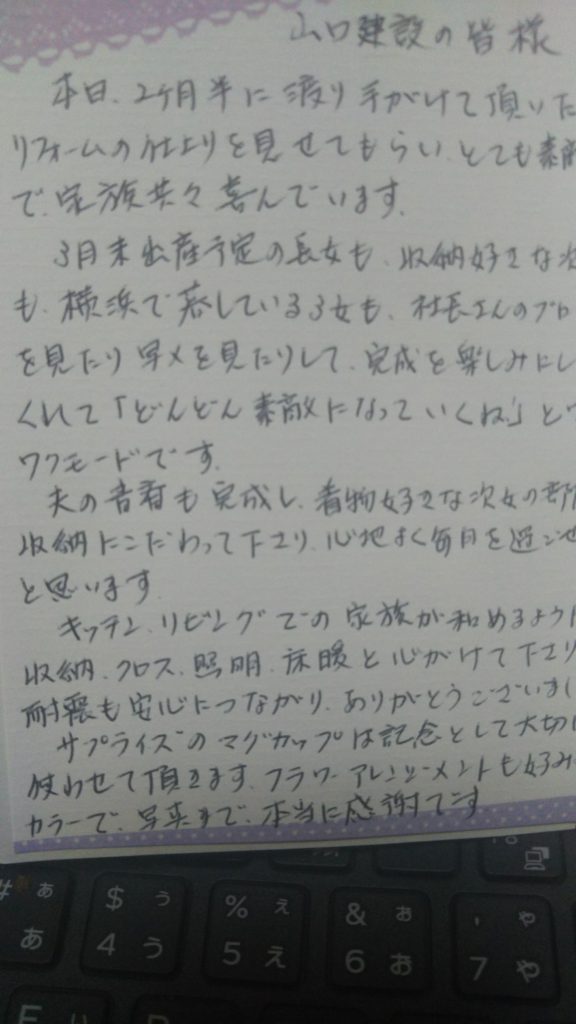 山口建設の皆様
本日、2ケ月半に渡り手がけて頂いた
リフォームの仕上りを見せてもらい、とても素敵
で、家族共々喜んでいます。
3月末出産予定の長女も、収納好きな次
も、横浜で暮している3女も、社長さんのブロ
を見たり写メを見たりして、完成を楽しみにし
くれて「どんどん素敵になっていくね!」とワ
ワクモードです。
夫の音君も完成し、着物好きな次女の部屋
収納にこだわって下さり、心地よく毎日を過ごせ
と思います。
キッチン、リビングでの家族が和めるように
収納、クロス、照明、床暖と心がけて下さり
耐震も安心につながり、ありがとうございまし
サプライズのマグカップは記念として大切に
使わせて頂きます。フラワーアレンジーメントも好み
カラーで、写真まで、本当に感謝です
# ぁ あ
$ ぅ 4 う
% ぇ 5 え
& ぉ 6 お
' ゃ 7 や
E